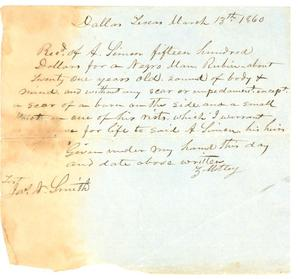 Dallas Texas March 13th 1860
Recd. of A. Simon fifteen hundred
Dollars for a Negro Man Rubin about
Twenty one years old sound of body &
mind and without any scar or impediment except
a scar of a burn on the side and a small
on one of his which I warrant
for life to said A Simon his heirs
Given under my hand this day
and date above written
Test
Jas. N. Smith